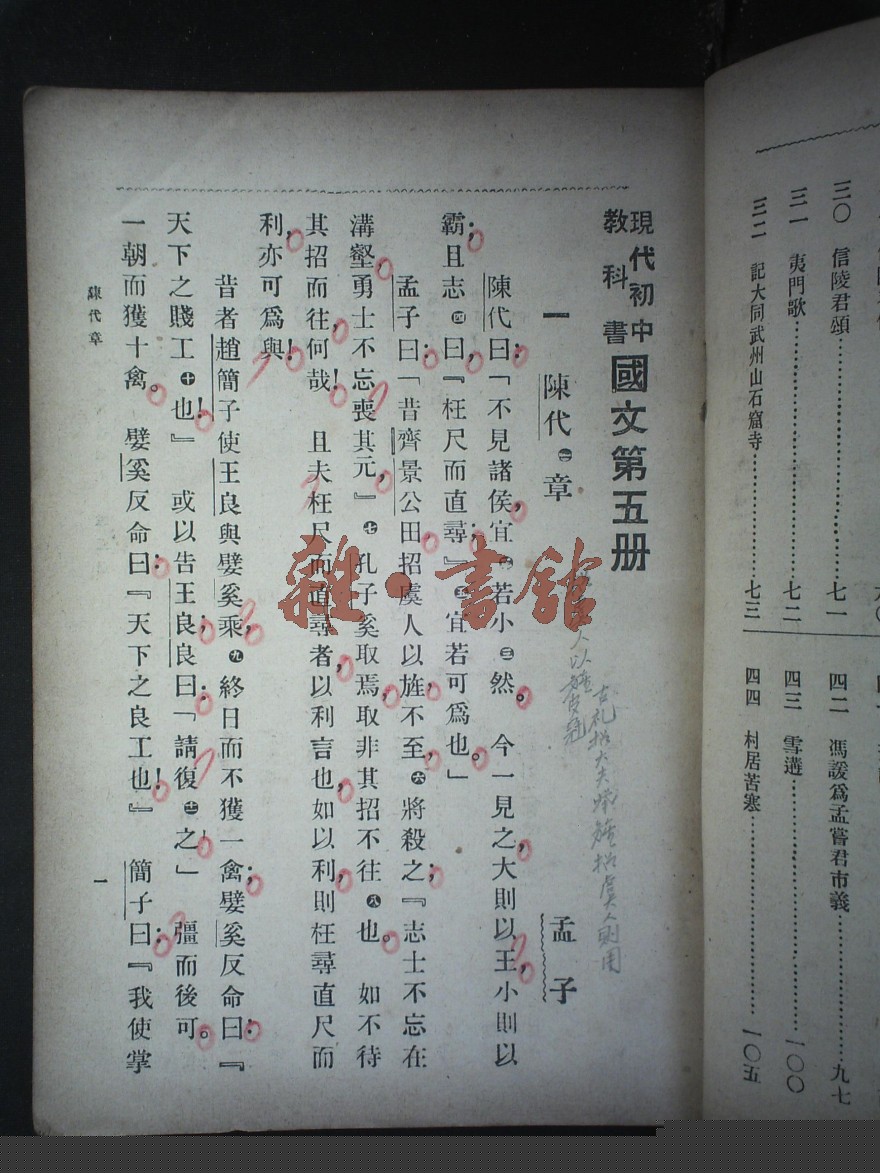 三〇 信陵君頌 七一
三一 夷門歌 七二
三二 記大同武州山石窟寺 七三
四二 馮諼爲孟嘗君市義 九七
四三 雪遘 一〇〇
四四 村居苦寒 一〇五
現代初中教科書 國文第五册
一 陳代㊁章 孟子
陳代曰:「不見諸侯,宜㊀若小㊂然。今一見之,大則以王,小則以
霸;且志㊃曰,『枉尺而直尋』㊄宜若可爲也。」
孟子曰:「昔齊景公田,招虞人以旌,不至㊅,將殺之;『志士不忘在
溝壑,勇士不忘喪其元,』㊆孔子奚取焉,取非其招不往㊇也。如不待
其招而往,何哉!且夫枉尺而直尋者,以利言也,如以利,則枉尋直尺而
利,亦可爲與!
昔者趙簡子使王良與嬖奚乘,㊈終日而不獲一禽;嬖奚反命曰:『
天下之賤工㊉也!』或以告王良,良曰:「請復之」彊而後可。
一朝而獲十禽。嬖奚反命曰:『天下之良工也!』簡子曰:『我使掌
陳代章
一
古礼招大夫以旌招虞人则用
雜·書館